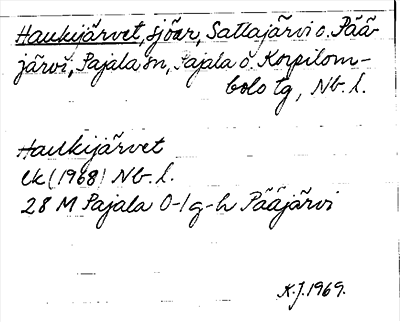 Haukijärvet, sjöar, Sattajärvi o. Pää-
järvi, Pajala sn, Pajala o. Korpilom-
bolo tg, Nb. l.
Haukijärvet
Ek (1968) Nb. l.
28 M Pajala 0-1 g-h Pääjärvi
K.J. 1969.